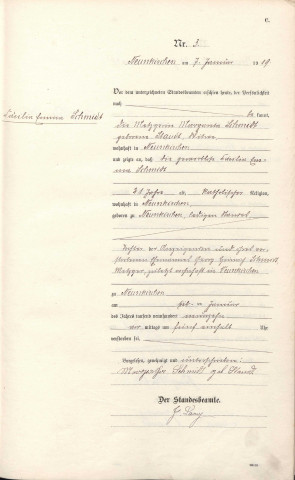 C.
Nr. 3
Neunkirchen am 7. Januar 1919
Vor dem unterzeichneten Standesbeamten erschien heute, der Persönlichkeit
nach
kannt,
Cäcilia Emma Schmidt
die Metzgerin Margareta Schmidt
geborene Staudt, Witwe
wohnhaft in Neunkirchen
und zeigte an, daß die Cäcilia Em-
ma Schmidt
31 Jahre alt, Katholischer Religion,
wohnhaft in Neunkirchen
geboren zu Neunkirchen, ledigen Standes
Tochter der Anzeigenden und
Schmidt
Metzger, zuletzt wohnhaft in Neunkirchen
zu Neunkirchen
am Januar
des Jahres tausend neunhundert neunzehn
mittags um fünf einhalb Uhr
verstorben sei.
Vorgelesen, genehmigt und unterschrieben
Margaretha Schmidt geb Staudt
Der Standesbeamte.